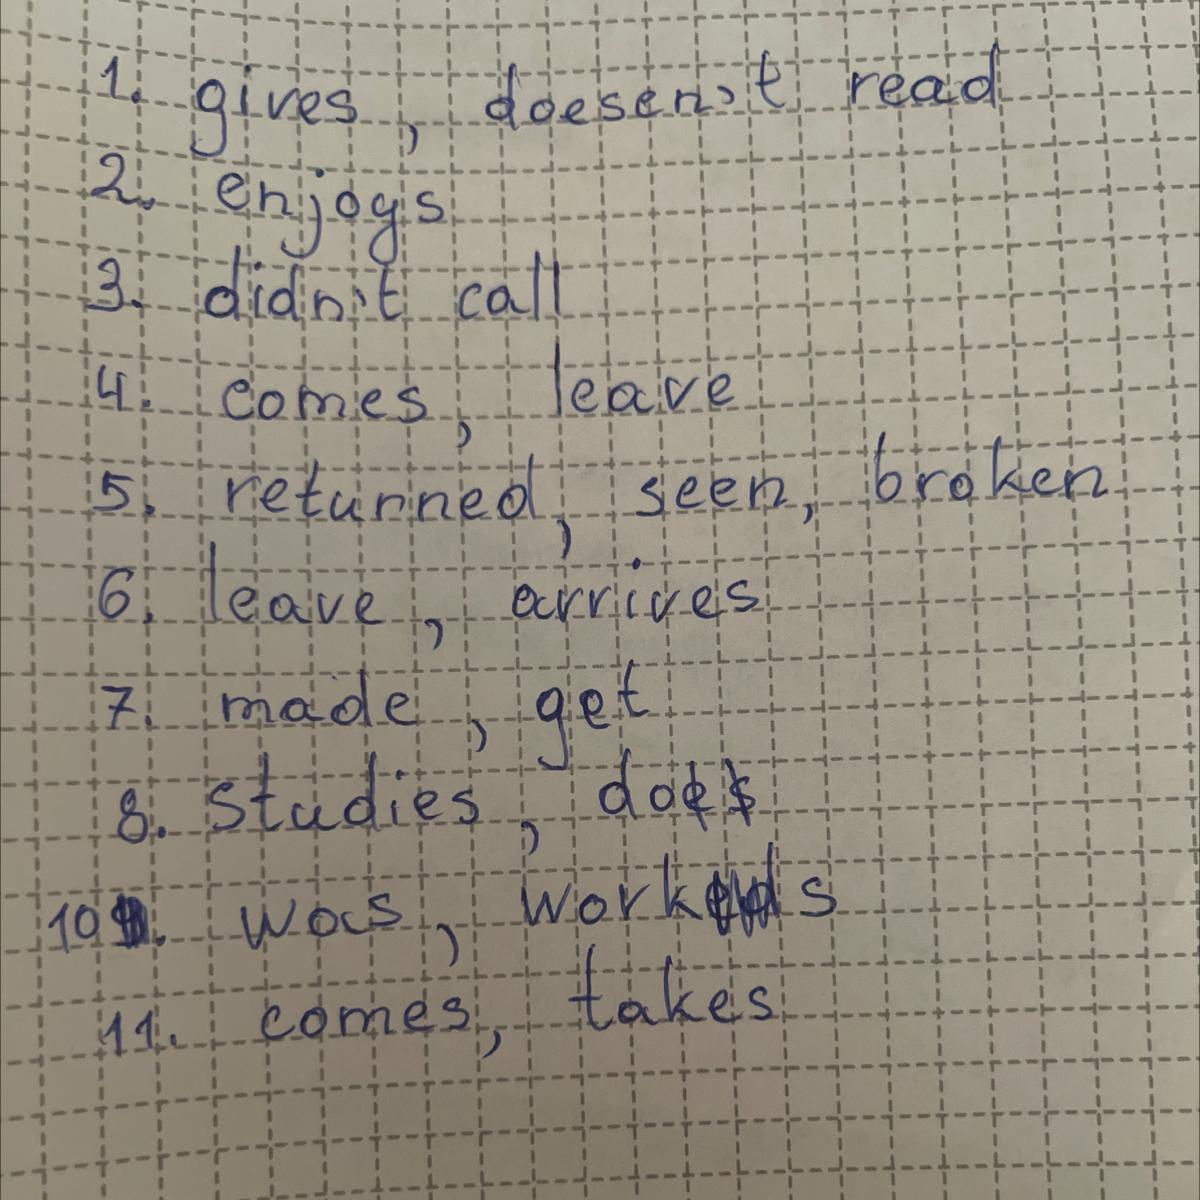 1. gives, doesen't read
2. enjoys
3. didn't call
4. comes, leave
5. returned, seen, broken
6. leave, arrives
7. made, get
8. studies, do
10. was, works
11. comes, takes